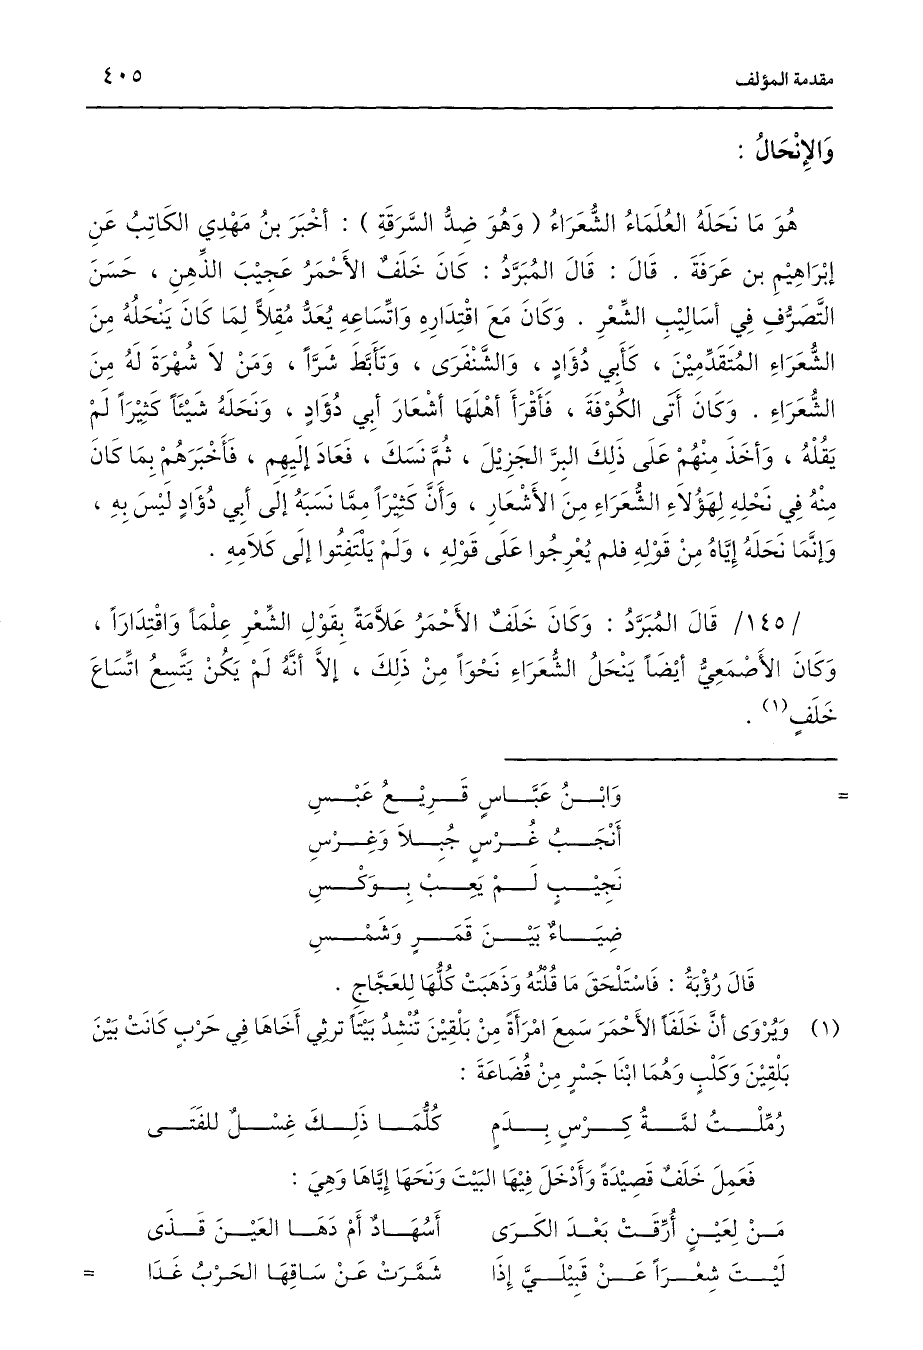 مقدمة المؤلف ٤٠٥
وَالإِنْحَالُ :
هُوَ مَا نَحَلَهُ العُلَمَاءُ الشُّعَرَاءُ ( وَهُوَ ضِدُّ السَّرَقَةِ ) : أَخْبَرَ بنُ مَهْدِي الكَاتِبُ عَن
إِبْرَاهِيْمِ بن عَرَفَةَ . قَالَ : قَالَ المُبَرَّدُ : كَانَ خَلَفٌ الأَحْمَرُ عَجِيْبَ الذِّهنِ ، حَسَنَ
التَّصَرُّفِ فِي أَسَالِيْبِ الشِّعْرِ . وَكَانَ مَعَ اقْتِدَارِهِ وَاتِّسَاعِهِ يُعَدُّ مُقِلاًّ لِمَا كَانَ يَنْحَلُهُ مِنَ
الشُّعَرَاءِ المُتَقَدِّمِيْنَ ، كَأَبِي دُؤَادٍ ، وَالشَّنْفَرَى ، وَتَأَبَّطَ شَرَّاً ، وَمَنْ لاَ شُهْرَةَ لَهُ مِنَ
الشُّعَرَاءِ . وَكَانَ أَتَى الكُوْفَةَ ، فَأَقْرَأَ أَهْلَهَا أَشْعَارَ أَبِي دُؤَادٍ ، وَنَحَلَهُ شَيْئَاً كَثِيْرَاً لَمْ
يَقُلْهُ ، وَأَخَذَ مِنْهُمْ عَلَى ذَلِكَ البِرَّ الجَزِيْلَ ، ثُمَّ نَسَكَ ، فَعَادَ إِلَيهِم ، فَأَخْبَرَهُمْ بِمَا كَانَ
مِنْهُ فِي نَحْلِهِ لِهَؤُلاَءِ الشُّعَرَاءِ مِنَ الأَشْعَارِ ، وَأَنَّ كَثِيْرَاً مِمَّا نَسَبَهُ إِلَى أَبِي دُؤَادٍ لَيْسَ بِهِ ،
وَإِنَّمَا نَحَلَهُ إِيَّاهُ مِنْ قَوْلِهِ فلم يُعْرِجُوا عَلَى قَوْلِهِ ، وَلَمْ يَلْتَفِتُوا إِلَى كَلاَمِهِ .
/١٤٥/ قَالَ المُبَرَّدُ : وَكَانَ خَلَفٌ الأَحْمَرُ عَلاَّمَةً بِقَوْلِ الشِّعْرِ عِلْمَاً وَاقْتِدَارَاً ،
وَكَانَ الأَصْمَعِيُّ أَيْضَاً يَنْحَلُ الشُّعَرَاءِ نَحْوَاً مِنْ ذَلِكَ ، إِلاَّ أَنَّهُ لَمْ يَكُنْ يَتَّسِعُ اتِّسَاعَ
خَلَفٍ(١) .
= وَابْنُ عَبَّاسٍ قَرِيْعُ عَبْسِ
أَنْجَبُ غُرْسٍ جُبِلاَ وَغِرْسِ
نَجِيْبٍ لَمْ يَعِبْ بِوَكْسِ
ضِيَاءٌ بَيْنَ قَمَرٍ وَشَمْسِ
قَالَ رُؤْبَةُ : فَاسْتَلْحَقَ مَا قُلْتُهُ وَذَهَبَتْ كُلُّهَا لِلعَجَّاجِ .
(١) وَيُرْوَى أَنَّ خَلَفَاً الأَحْمَرَ سَمِعَ امْرَأَةً مِنْ بَلْقِيْنَ تُنْشِدُ بَيْتَاً ترثِي أَخَاهَا فِي حَرْبٍ كَانَتْ بَيْنَ
بَلْقِيْنَ وَكَلْبٍ وَهُمَا ابْنَا جَسْرٍ مِنْ قُضَاعَةَ :
رُمِّلْتُ لمَّةُ كِرْسٍ بِدَمٍ كُلُّمَا ذَلِكَ غِسْلٌ للفَتَى
فَعَمِلَ خَلَفٌ قَصِيْدَةً وَأَدْخَلَ فِيْهَا البَيْتَ وَنَحَهَا إِيَّاهَا وَهِيَ :
مَنْ لِعَيْنٍ أُرِّقَتْ بَعْدَ الكَرَى أَسُهَادٌ أَمْ دَهَا العَيْنَ قَذَى
لَيْتَ شِعْرَاً عَنْ قَبِيْلَيَّ إِذَا شَمَّرَتْ عَنْ سَاقِهَا الحَرْبُ غَدَا =